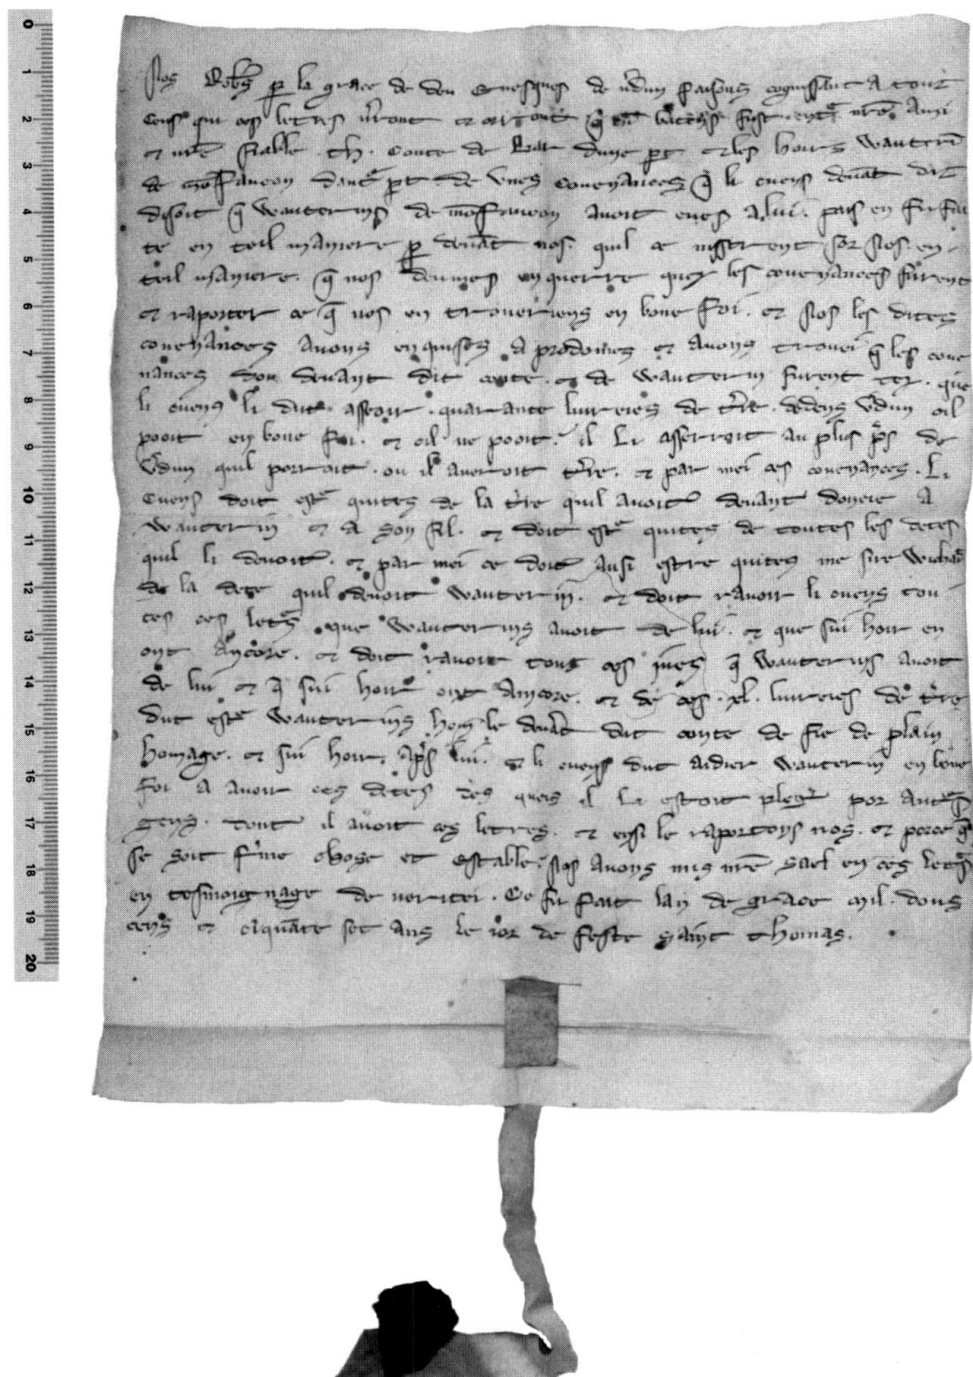 Nos Rob's p la grace de deu evesques de v'dun faisons cognissant a touz
ceus qui ces letres v'ront et orront q cū batens fust entre nrē ami
et nrē fiable th. conte de Bar dune pt. et les hoirs Wauterī
de Mōfaucon dautre pt. de unes covenances q li cuens devāt diz
disoit q Wauterins de mōfaucon avoit eues a lui. pais en fu fai
te en teil maniere p devāt nos. quil ce missrent sor nos. en
teil maniere. q nos devines enquerre quez les covenances furent
et raporter ce q nos en troveriens en bone foi. et nos les dites
covenances avons enquises a prodomes et avons trovei q les cove
nances dou devant dit conte. et de Wauterin furent tez. que
li cuens li dut asseoir. quarante livreies de t're. dedens v'dun cil
pooit en bone foi. et cil ne pooit. il li asserroit au plus ps de
v'dun quil porroit. ou il averoit t're. et par mei ces covenances. li
cuens doit est' quites de la t're quil avoit devant doneie a
Wauterin et a son fil. et doit est' quites de toutes les detes
quil li devoit. et par mei ce doit ausi estre quites me sire Wichar
de la dete quil devoit Wauterin. et doit ravoir li cuens tou
tes ces lets que Wauterins avoit de lui. et que sui hoir en
ont ancore. et doit ravoir touz ces pleges q Wauterins avoit
de lui et q sui hoir ont ancore. et de ces .xl. livreies de t're
dut est' Wauterins hom le devāt dit conte de fie de plain
homage. et sui hoir ap's lui. et li cuens dut aidier Wauterin en bone
foi a avoir ces detes des queis il li estoit pleges por autres
gens. dont il avoit ces letres. et ensi le raportons nos. et porce q
se soit f'me chose et estable. nos avons mis nrē sael en ces lets
en tesmoignage de veritei. Ce fu fait lan de grace mil. dous
cens et ciquāte set ans le ior de feste saint thomas.
0
1
2
3
4
5
6
7
8
9
10
11
12
13
14
15
16
17
18
19
20